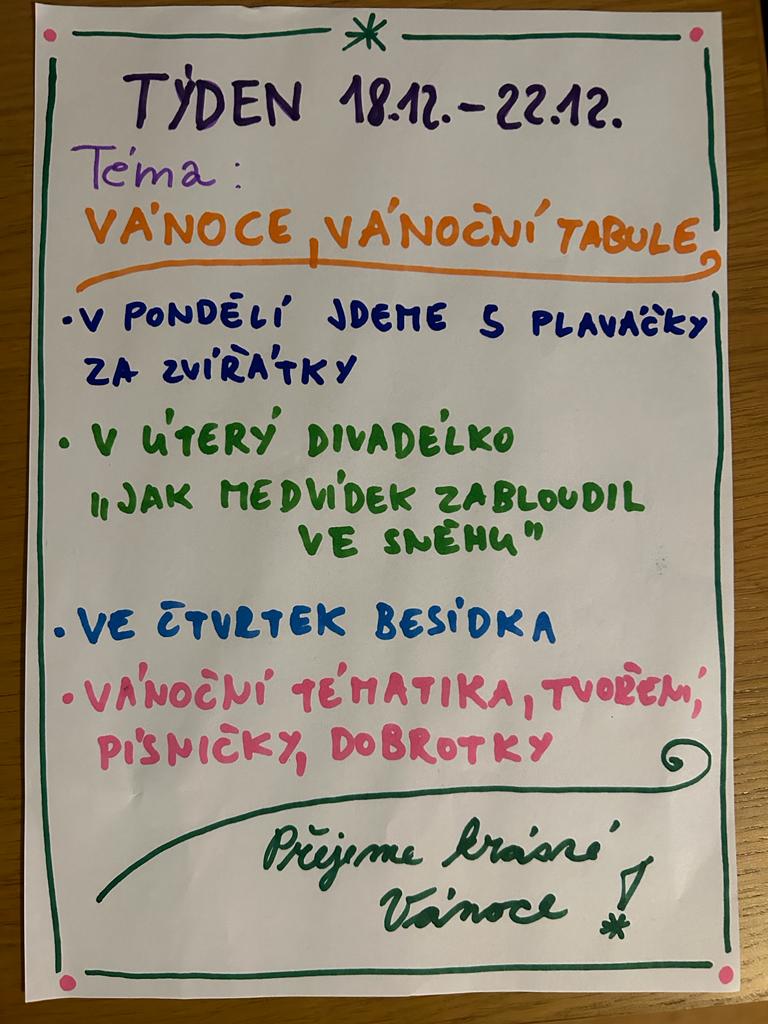 TÝDEN 18.12. - 22.12.
Téma:
VÁNOCE, VÁNOČNÍ TABULE
• V PONDĚLÍ JDEME S PLAVÁČKY
ZA ZVÍŘÁTKY
• V ÚTERÝ DIVADÉLKO
„JAK MEDVÍDEK ZABLOUDIL
VE SNĚHU"
• VE ČTVRTEK BESÍDKA
• VÁNOČNÍ TÉMATIKA, TVOŘENÍ,
PÍSNIČKY, DOBROTKY
Přejeme krásné
Vánoce!